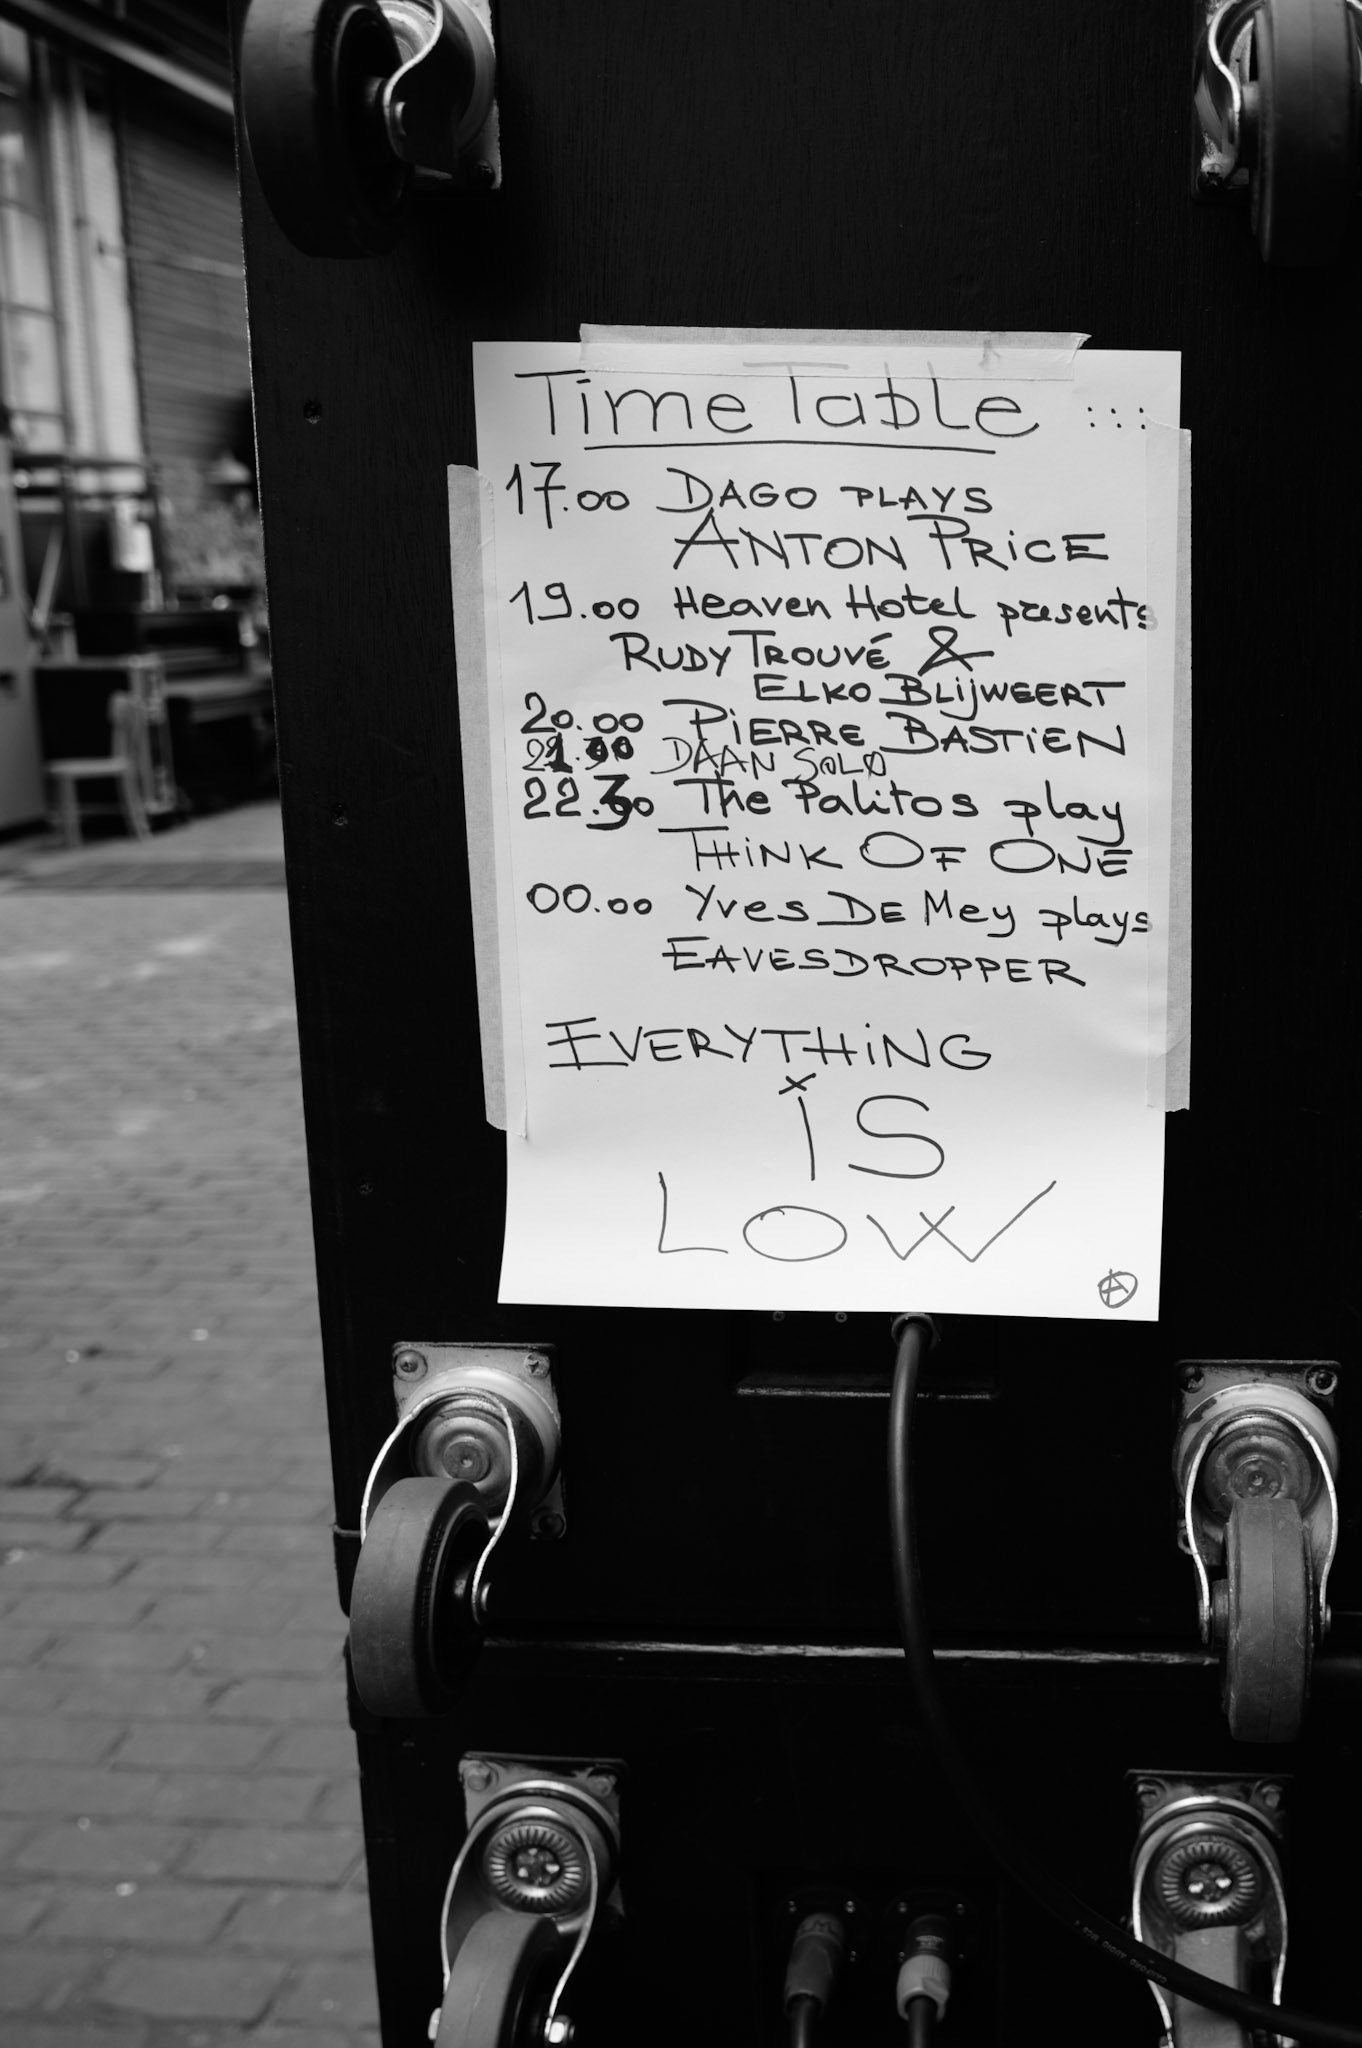 Time Table ...
17.00 DAGO PLAYS
ANTON PRiCE
19.00 Heaven Hotel presents
RUDY TROUVÉ &
ELKO BLijWEERT
20.00 PiERRE BASTiEN
21.30 DAAN SOLO
22.30 The Palitos play
THiNK OF ONE
00.00 Yves DE Mey plays
EAVESDROPPER
EVERYTHiNG
iS
LOW
A